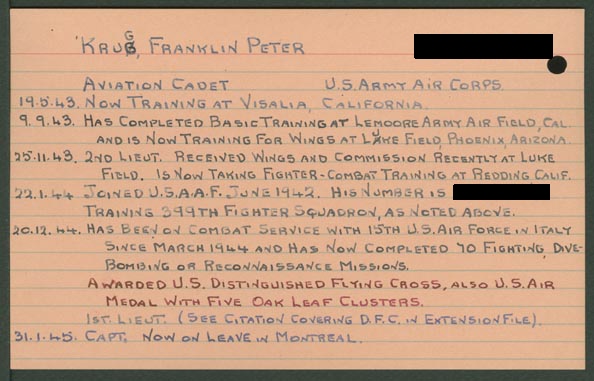 KRUG, FRANKLIN PETER
AVIATION CADET U.S. ARMY AIR CORPS.
19.5.43. NOW TRAINING AT VISALIA, CALIFORNIA.
9.9.43. HAS COMPLETED BASIC TRAINING AT LEMOORE ARMY AIR FIELD, CAL.
AND IS NOW TRAINING FOR WINGS AT LUKE FIELD, PHOENIX, ARIZONA.
25.11.43. 2ND LIEUT. RECEIVED WINGS AND COMMISSION RECENTLY AT LUKE
FIELD. IS NOW TAKING FIGHTER-COMBAT TRAINING AT REDDING, CALIF.
22.1.44 JOINED U.S.A.A.F. JUNE 1942. HIS NUMBER IS
TRAINING 399TH FIGHTER SQUADRON, AS NOTED ABOVE.
20.12.44. HAS BEEN ON COMBAT SERVICE WITH 15TH U.S. AIR FORCE IN ITALY
SINCE MARCH 1944 AND HAS NOW COMPLETED 70 FIGHTING, DIVE-
BOMBING OR RECONNAISSANCE MISSIONS.
AWARDED U.S. DISTINGUISHED FLYING CROSS, ALSO U.S. AIR
MEDAL WITH FIVE OAK LEAF CLUSTERS.
1ST. LIEUT. (SEE CITATION COVERING D.F.C. IN EXTENSION FILE).
31.1.45. CAPT. NOW ON LEAVE IN MONTREAL.